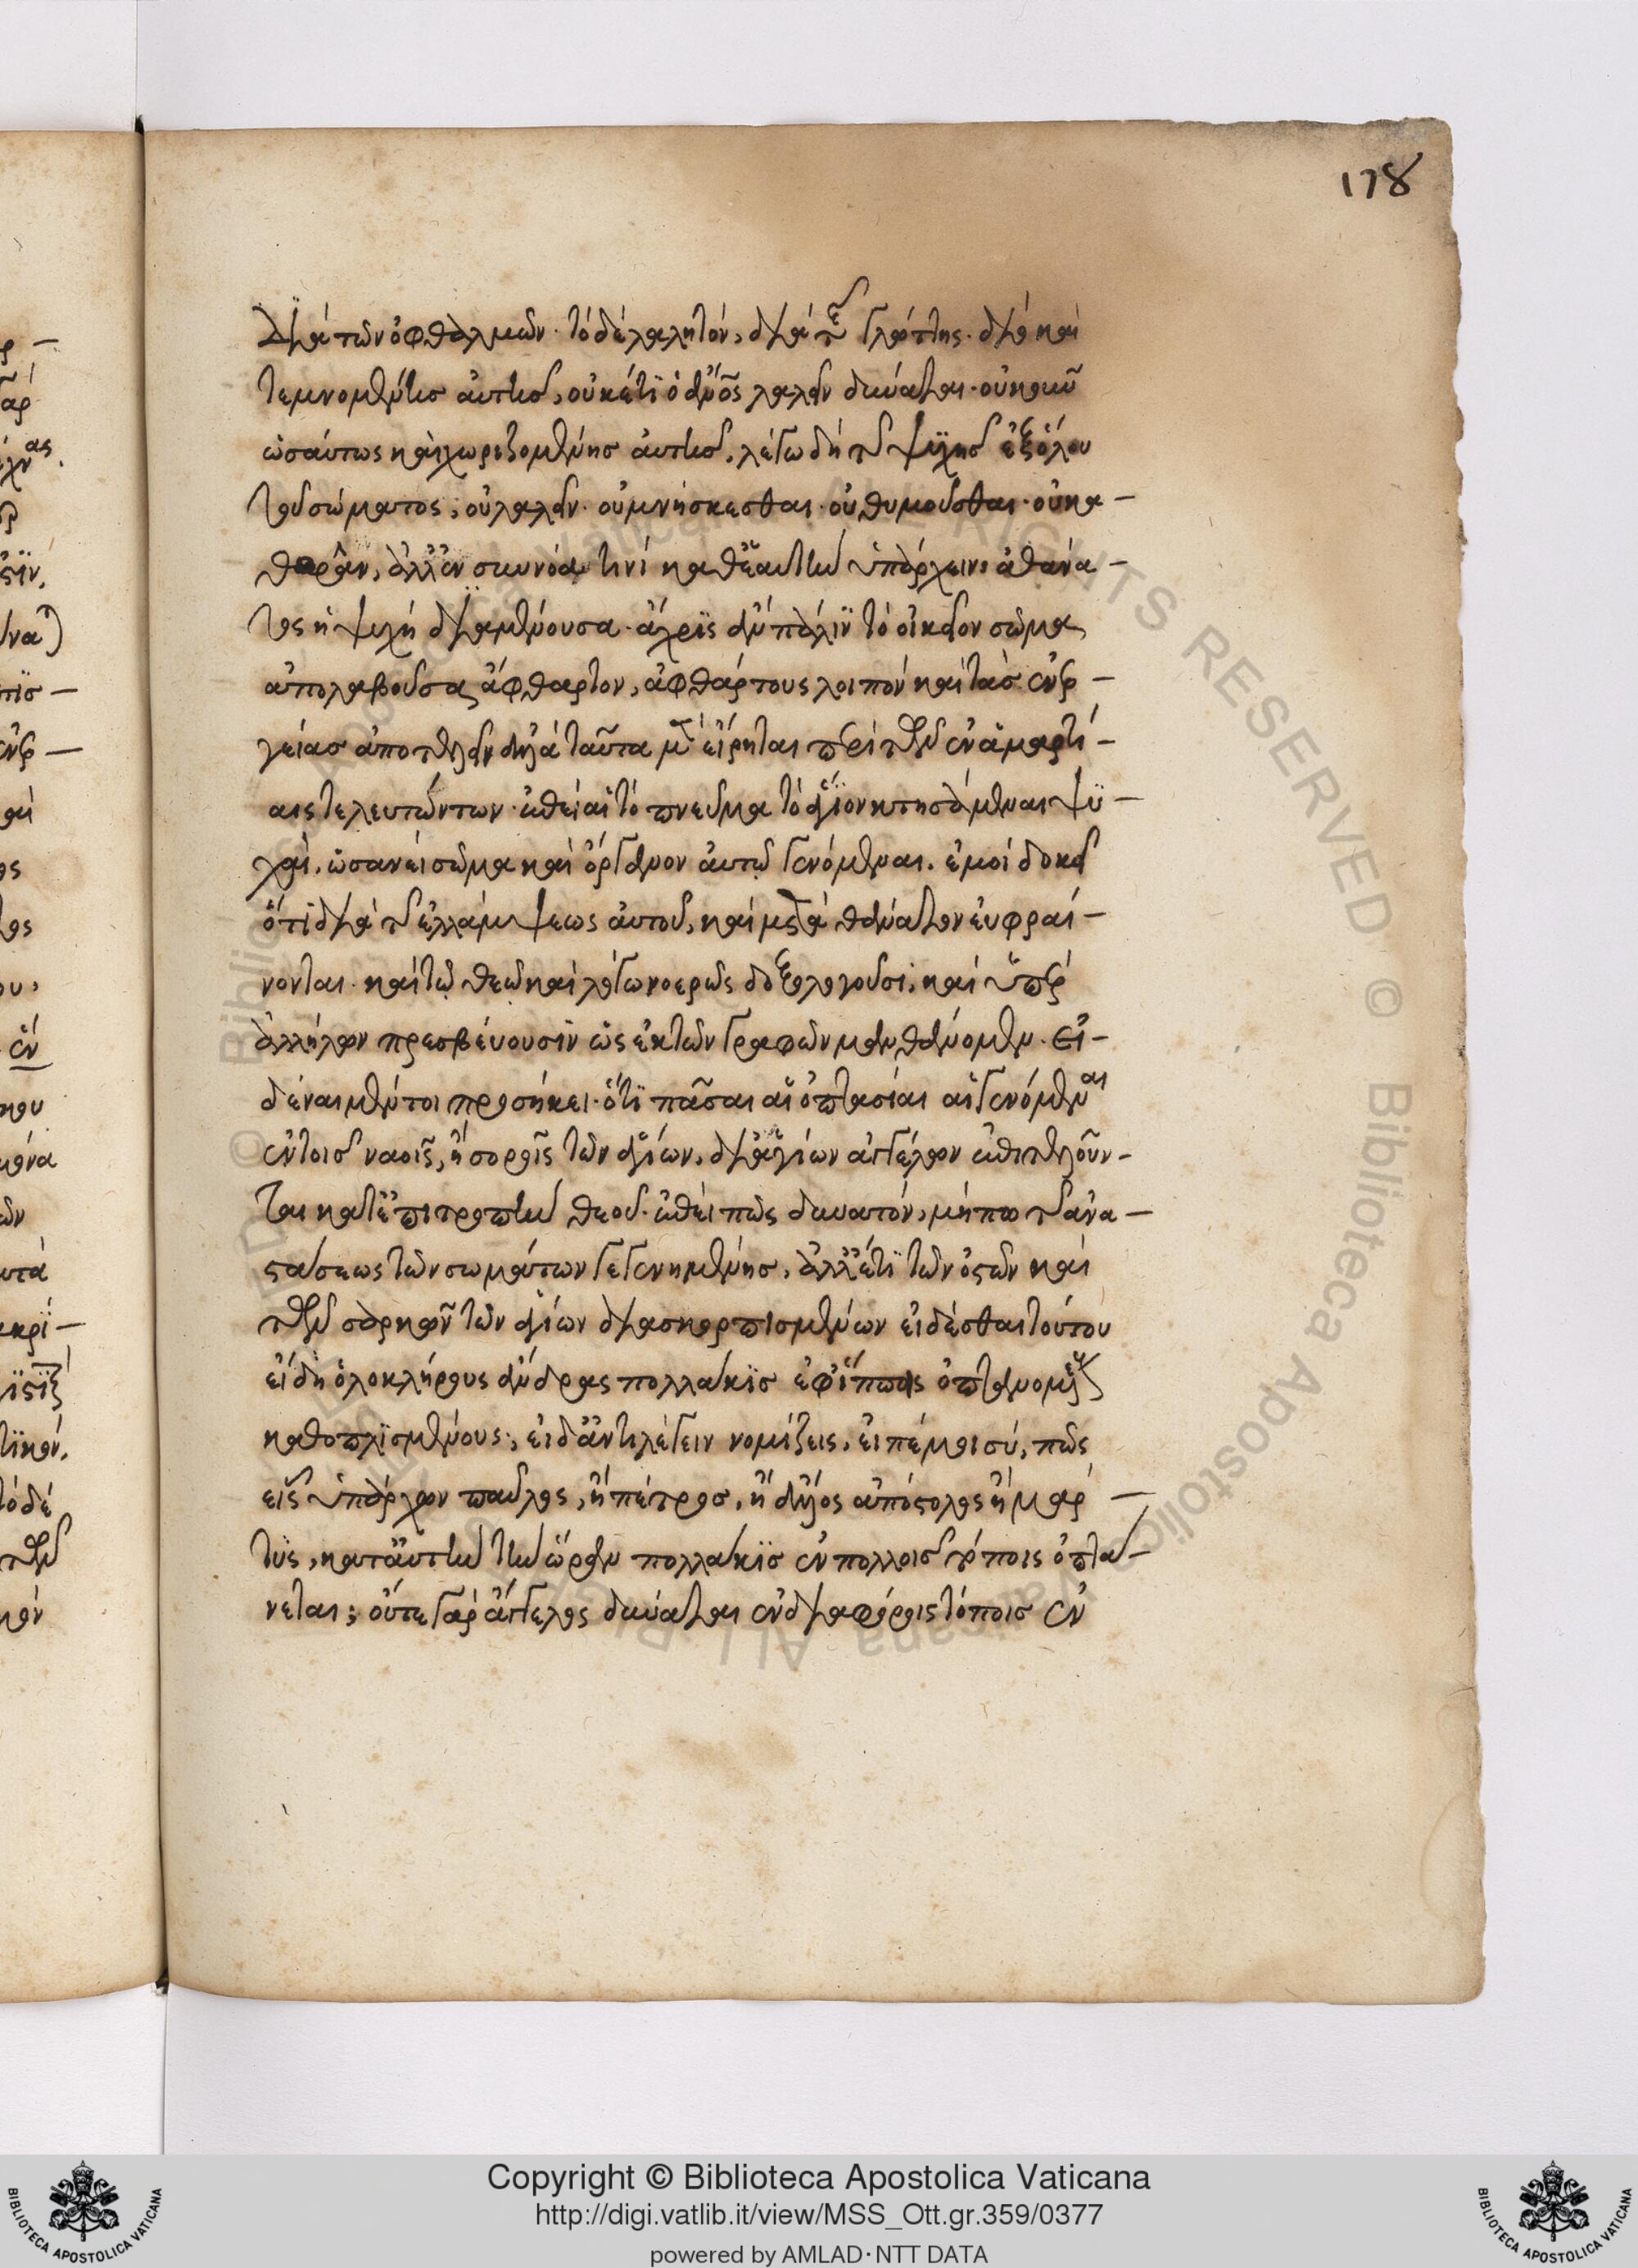 178
διὰ τῶν ὀφθαλμῶν· τὸ δὲ λαλητὸν, διὰ τῆς γλώττης· διὸ καὶ
τεμνομένης αὐτῆς, οὐκέτι ὁ νοῦς λαλεῖν δύναται· οὐκοῦν
ὡσαύτως καὶ χωριζομένης αὐτῆς, λέγω δὴ τῆς ψυχῆς ἐξ ὅλου
τοῦ σώματος, οὐ λαλεῖν· οὐ μνήσκεσθαι· οὐ θυμοῦσθαι· οὐ κα –
θορᾶν, ἀλλ' ἐν συννοίᾳ τινὶ καθ' ἑαυτὴν ὑπάρχειν· ἀθάνα –
τος ἡ ψυχὴ διαμένουσα· ἄχρις ἂν πάλιν τὸ οἰκεῖον σῶμα
ἀπολαβοῦσα ἄφθαρτον, ἀφθάρτους λοιπὸν καὶ τὰς ἐνερ –
γείας ἀποτελεῖν ἀλλὰ ταῦτα μὲν εἴρηται περὶ τῶν ἐν ἁμαρτί –
αις τελευτώντων· ἐπεὶ αἱ τὸ πνεῦμα τὸ ἅγιον κτησάμεναι ψυ –
χαὶ, ὡσανεὶ σῶμα καὶ ὄργανον αὐτῷ γενόμεναι. ἐμοὶ δοκεῖ
ὅτι διὰ τῆς ἐλλάμψεως αὐτοῦ, καὶ μετὰ θάνατον εὐφραί –
νονται· καὶ τῷ θεῷ καὶ λόγῳ νοερῶς δοξολογοῦσι, καὶ ὑπὲρ
ἀλλήλων πρεσβεύουσιν ὡς ἐκ τῶν γραφῶν μανθάνομεν· εἰ –
δέναι μέντοι προσήκει· ὅτι πᾶσαι αἱ ὀπτασίαι αἱ γενόμεναι
ἐν τοῖς ναοῖς, ἢ σοροῖς τῶν ἁγίων, δι' ἁγίων ἀγγέλων ἐπιτελοῦν –
ται κατ' ἐπιτροπὴν θεοῦ· ἐπεὶ πῶς δυνατὸν, μήπω τῆς ἀνα –
στάσεως τῶν σωμάτων γεγενημένης, ἀλλ' ἔτι τῶν ὀστῶν καὶ
τῶν σαρκῶν τῶν ἁγίων διασκορπισμένων εἰδέσθαι τούτου
εἴδη ὁλοκλήρους ἄνδρας πολλάκις ἐφ' ἵπποις ὀπτανομένους
καθοπλισμένους· εἰ δ' ἀντιλέγειν νομίζεις, εἰπέ μοι σύ, πῶς
εἷς ὑπάρχων παῦλος, ἢ πέτρος, ἢ ἄλλος ἀπόστολος ἢ μάρ –
τυς, κατ' αὐτὴν τὴν ὥραν πολλάκις ἐν πολλοῖς τόποις ὀπτά –
νεται; οὔτε γὰρ ἄγγελος δύναται ἐν διαφόροις τόποις ἐν
Copyright © Biblioteca Apostolica Vaticana
http://digi.vatlib.it/view/MSS_Ott.gr.359/0377
powered by AMLAD·NTT DATA
BIBLIOTECA APOSTOLICA VATICANA
BIBLIOTECA APOSTOLICA VATICANA